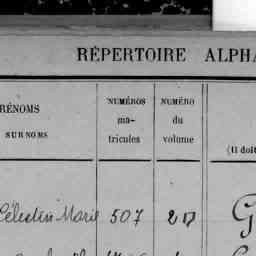 RÉPERTOIRE ALPHA
RÉNOMS
SURNOMS
NUMÉROS
ma-
tricules
NUMÉRO
du
volume
(Il doit
Célestin Marie 507
G